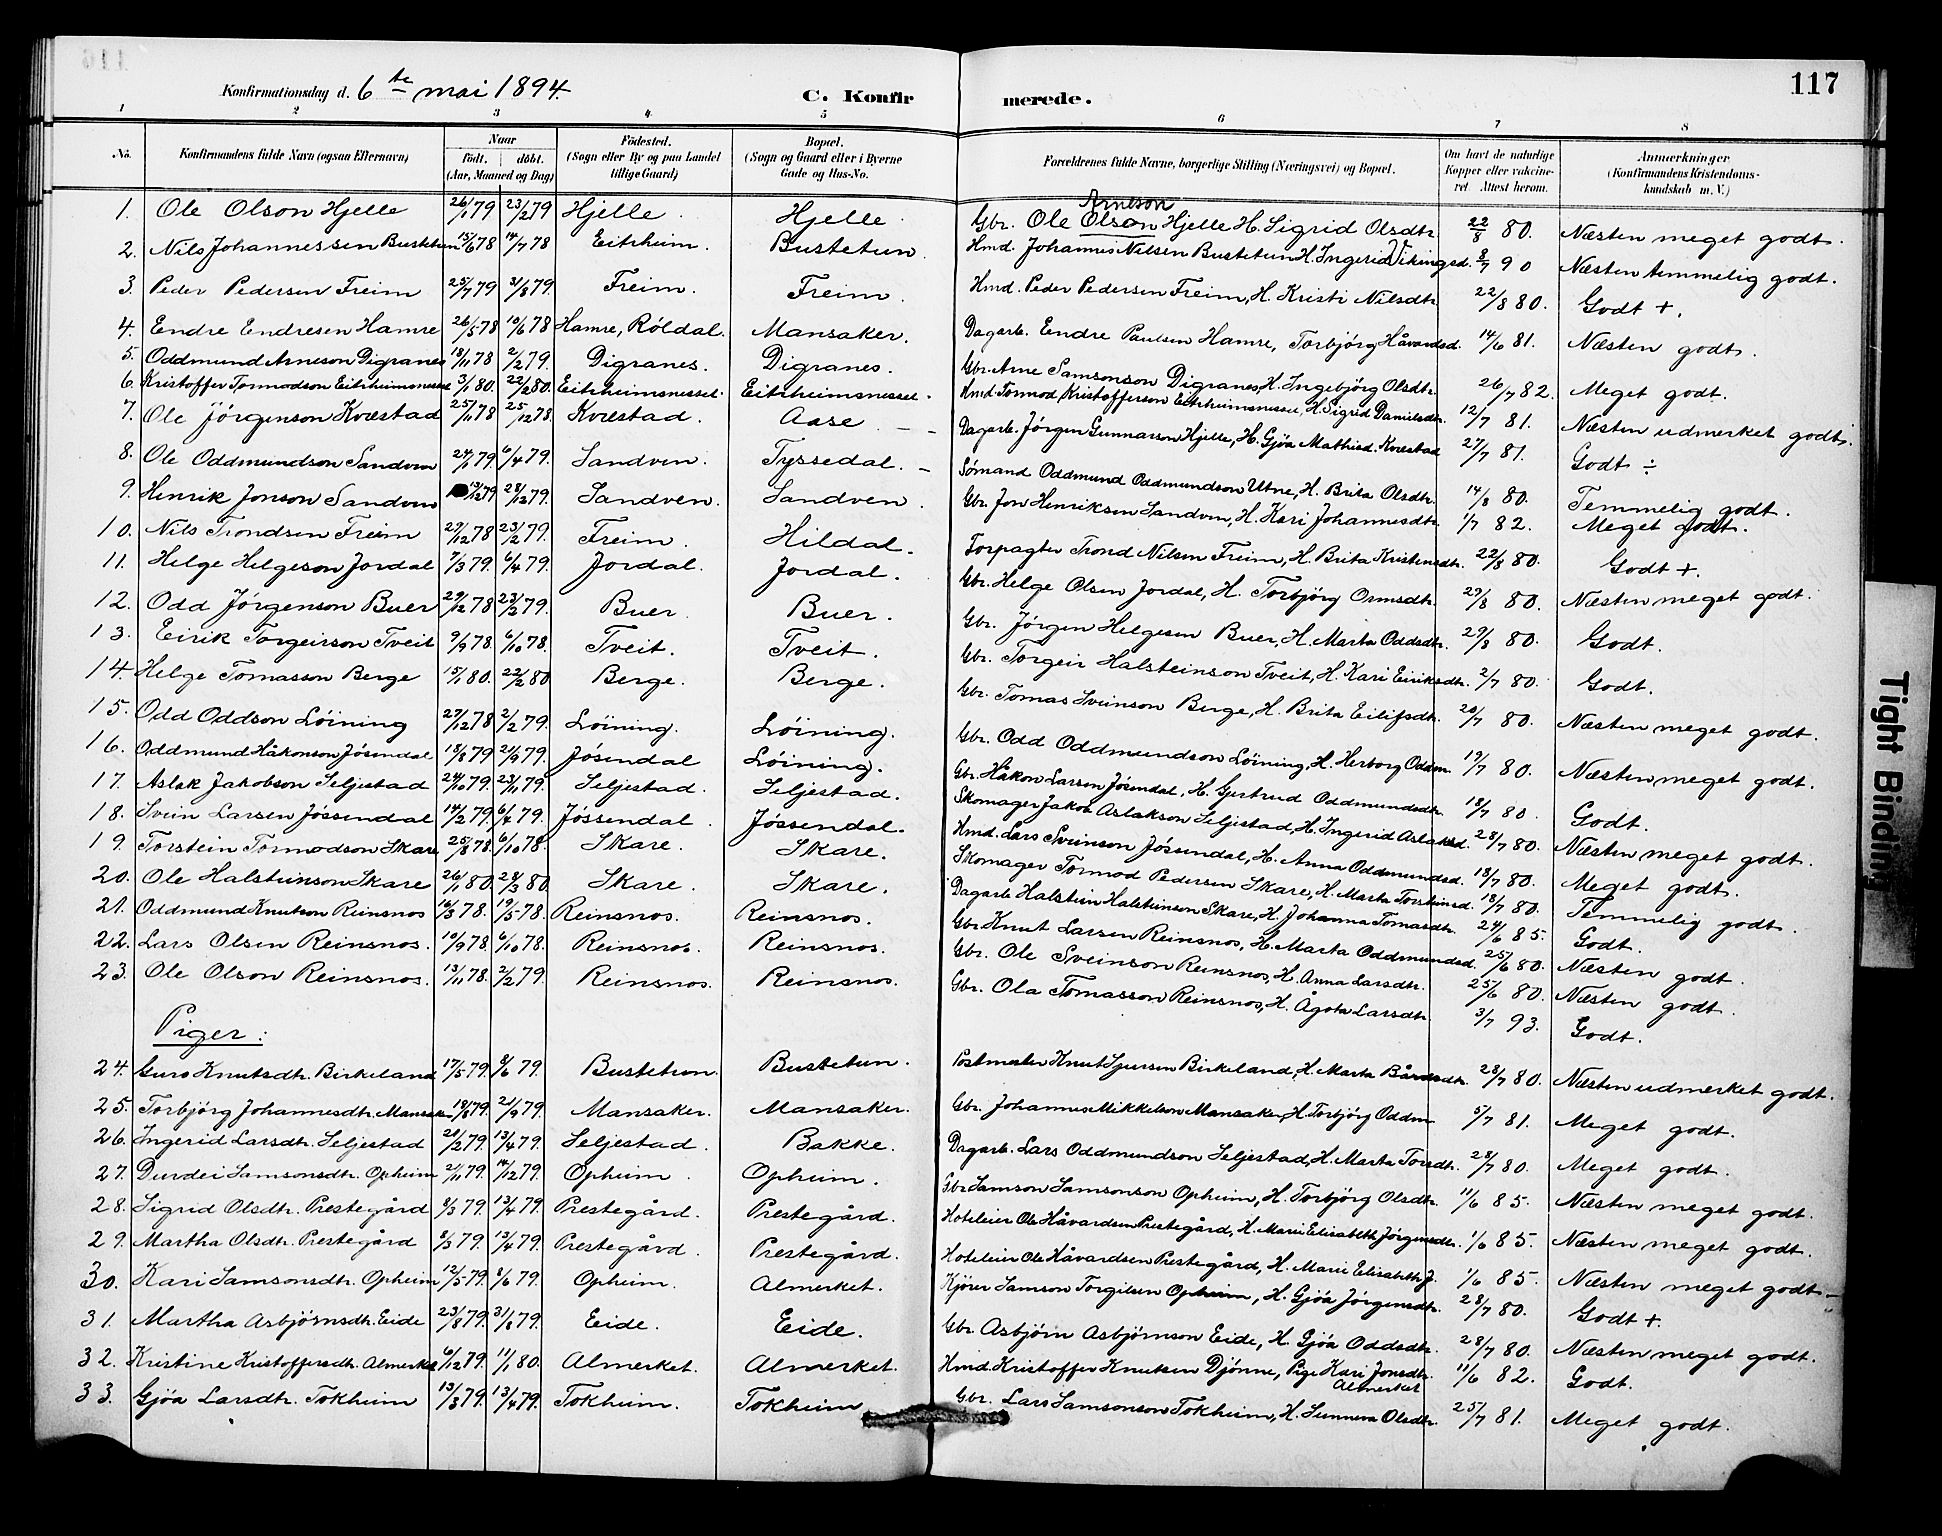 117
Konfirmationsdag d. 6te mai 1894. C. Konfirmerede.
1 2 3 4 5 6 7 8
No. Konfirmandens fulde Navn (ogsaa Efternavn) Naar født. døbt. (Aar, Maaned og Dag) Fødested. (Sogn eller By og paa Landet tillige Gaard) Bopæl. (Sogn og Gaard eller i Byerne Gade og Hus-No. Forældrenes fulde Navne, borgerlige Stilling (Næringsvei) og Bopæl. Om havt de naturlige Kopper eller vakcineret. Attest herom. Anmærkninger (Konfirmandens Kristendomskundskab m. V.)
1. Ole Olson Hjelle 26/1 79 23/2 79 Hjelle. Hjelle. Gbr. Ole Olson Arneson Hjelle H. Sigrid Olsdtr. 22/8 80. Næsten meget godt.
2. Nils Johannessen Bustetun 15/6 78 14/7 78 Eitrheim. Bustetun. Hmd. Johannes Nilsen Bustetun H. Ingerid Vikingsd. 8/7 90 Næsten temmelig godt.
3. Peder Pedersen Freim 25/7 79 31/8 79. Freim. Freim. Hmd. Peder Pedersen Freim, H. Kristi Nilsdtr. 22/8 80. Godt +.
4. Endre Endresen Hamre 26/5 78 10/6 78 Hamre, Røldal. Mansaker. Dagarb. Endre Paulsen Hamre, Torbjørg Håvardsd. 14/6 81. Næsten godt.
5. Oddmund Arneson Digranes 18/11 78 2/2 79. Digranes. Digranes. Gbr. Arne Samsonson Digranes, H. Ingebjørg Olsdtr. 26/7 82. Meget godt.
6. Kristoffer Tormodson Eitrheimsnesset 3/1 80. 22/2 80. Eitrheimsnesset. Eitrheimsnesset. Hmd. Tormod Kristofferson Eitrheimsnesset, H. Sigrid Danielsdtr. 12/7 81. Næsten udmerket godt.
7. Ole Jørgenson Kvæstad 25/11 78 25/12 78. Kvæstad. Aase. – – Dagarb. Jørgen Gunnarson Hjelle, H. Gjøa Mathisd. Kvæstad 27/7 81. Godt ÷
8. Ole Oddmundson Sandven 24/1 79. 6/4 79. Sandven. Tyssedal. – Sømand Oddmund Oddmundson Utne, H. Brita Olsdtr. 14/8 80. Temmelig godt.
9. Henrik Jonson Sandven 19/12 79 28/12 79. Sandven. Sandven. Gbr. Jon Henriksen Sandven, H. Kari Johannesdtr. 1/7 82. Meget godt.
10. Nils Trondsen Freim 29/12 78 23/2 79. Freim. Hildal. Forpagter Trond Nilsen Freim, H. Brita Kristensdtr. 22/8 80. Godt +.
11. Helge Helgeson Jordal 7/3 79. 6/4 79. Jordal. Jordal. Gbr. Helge Olsen Jordal, H. Torbjørg Ormsdtr. 29/8 80. Næsten meget godt.
12. Odd Jørgenson Buer 29/12 78 23/2 79. Buer. Buer. Gbr. Jørgen Helgesen Buer, H. Marta Oddsdtr. 29/8 80. Godt.
13. Eirik Torgeirson Tveit 9/9 78. 6/10 78. Tveit. Tveit. Gbr. Torgeir Halsteinson Tveit, H. Kari Eiriksdtr. 2/7 80. Godt.
14. Helge Tomasson Berge 15/1 80. 22/2 80 Berge. Berge. Gbr. Tomas Sveinson Berge, H. Brita Eilifsdtr. 20/7 80. Næsten meget godt.
15. Odd Oddson Løining 27/12 78 2/2 79. Løining. Løining. Gbr. Odd Oddmundson Løining, H. Herborg Oddm. 19/7 80. Næsten meget godt.
16. Oddmund Håkonson Jøsendal 18/8 79 21/9 79. Jøsendal Løining. Gbr. Håkon Larsen Jøsendal, H. Gertrud Oddmundsdtr. 18/7 80. Godt.
17. Aslak Jakobson Seljestad 24/10 79. 23/11 79. Seljestad. Seljestad. Skomager Jakob Aslakson Seljestad, H. Ingerid Aslaksd. 28/7 80. Næsten meget godt.
18. Svein Larsen Jøssendal 14/2 79. 6/4 79. Jøssendal. Jøssendal. Hmd. Lars Sveinson Jøssendal, H. Anna Oddmundsd. 18/7 80. Meget godt.
19. Torstein Tormodson Skare 25/8 78. 6/10 78. Skare. Skare. Skomager Tormod Pedersen Skare, H. Marta Torsteinsd. 18/7 80. Temmelig godt.
20. Ole Halsteinson Skare 26/1 80. 28/3 80. Skare. Skare. Dagarb. Halstein Halsteinson Skare, H. Johanna Tomasdtr. 24/6 85. Godt.
21. Oddmund Knutson Reinsnos 16/3 78. 19/5 78. Reinsnos. Reinsnos. Gbr. Knut Larsen Reinsnos, H. Marta Oddmundsd. 25/6 80. Næsten godt.
22. Lars Olsen Reinsnos. 10/9 78. 6/10 78. Reinsnos. Reinsnos. Gbr. Ole Sveinson Reinsnos, H. Anna Larsdtr. 25/6 80. Næsten godt.
23. Ole Olson Reinsnos. 13/11 78. 2/2 79. Reinsnos. Reinsnos. Gbr. Ola Tomasson Reinsnos, H. Ågota Larsdtr. 3/7 93. Godt.
Piger:
24. Guro Knutsdtr. Birkeland 17/5 79. 8/6 79. Bustetun. Bustetun. Postmester Knut Sjursen Birkeland, H. Marta Bårdsdtr. 28/7 80. Næsten udmerket godt.
25. Torbjørg Johannesdtr. Mansaker 18/8 79. 21/9 79. Mansaker. Mansaker. Gbr. Johannes Mikkelson Mansaker, H. Torbjørg Oddm 5/7 81. Meget godt.
26. Ingerid Larsdtr. Seljestad 21/2 79. 13/4 79. Seljestad. Bakke. Dagarb. Lars Oddmundson Seljestad, H. Marta Torsdtr. 28/7 80. Meget godt.
27. Durdei Samsonsdtr. Opheim 2/11 79. 14/12 79. Opheim. Opheim. Gbr. Samson Samsonson Opheim, H. Torbjørg Olsdtr. 11/6 85. Næsten meget godt.
28. Sigrid Olsdtr. Prestegård 8/3 79. 13/4 79. Prestegård. Prestegård. Hoteleier Ole Håvardsen Prestegård, H. Marie Elisabeth Jørgensdtr. 1/6 85. Næsten meget godt.
29. Martha Olsdtr. Prestegård 8/3 79. 13/4 79. Prestegård. Prestegård. Hoteleier Ole Håvardsen Prestegård, H. Marie Elisabeth J. 1/6 85. Næsten meget godt
30. Kari Samsonsdtr. Opheim 12/5 79. 8/6 79. Opheim. Almerket. Kjører Samson Torgilsen Opheim, H. Gjøa Jørgensdtr. 28/7 80. Godt +.
31. Martha Asbjørnsdtr. Eide 23/8 79. 31/8 79. Eide. Eide. Gbr. Asbjørn Asbjørnson Eide, H. Gjøa Oddsdtr. 28/7 80. Næsten meget godt.
32. Kristine Kristoffersdtr. Almerket 6/12 79. 11/1 80. Almerket. Almerket. Hmd. Kristoffer Knutsen Djønne, Pige Kari Jonsdtr. Almerket 11/6 82. Godt.
33. Gjøa Larsdtr. Tokheim 13/3 79. 13/4 79. Tokheim. Tokheim Gbr. Lars Samsonson Tokheim, H. Sunneva Olsdtr. 25/7 81. Meget godt.
Tight Binding